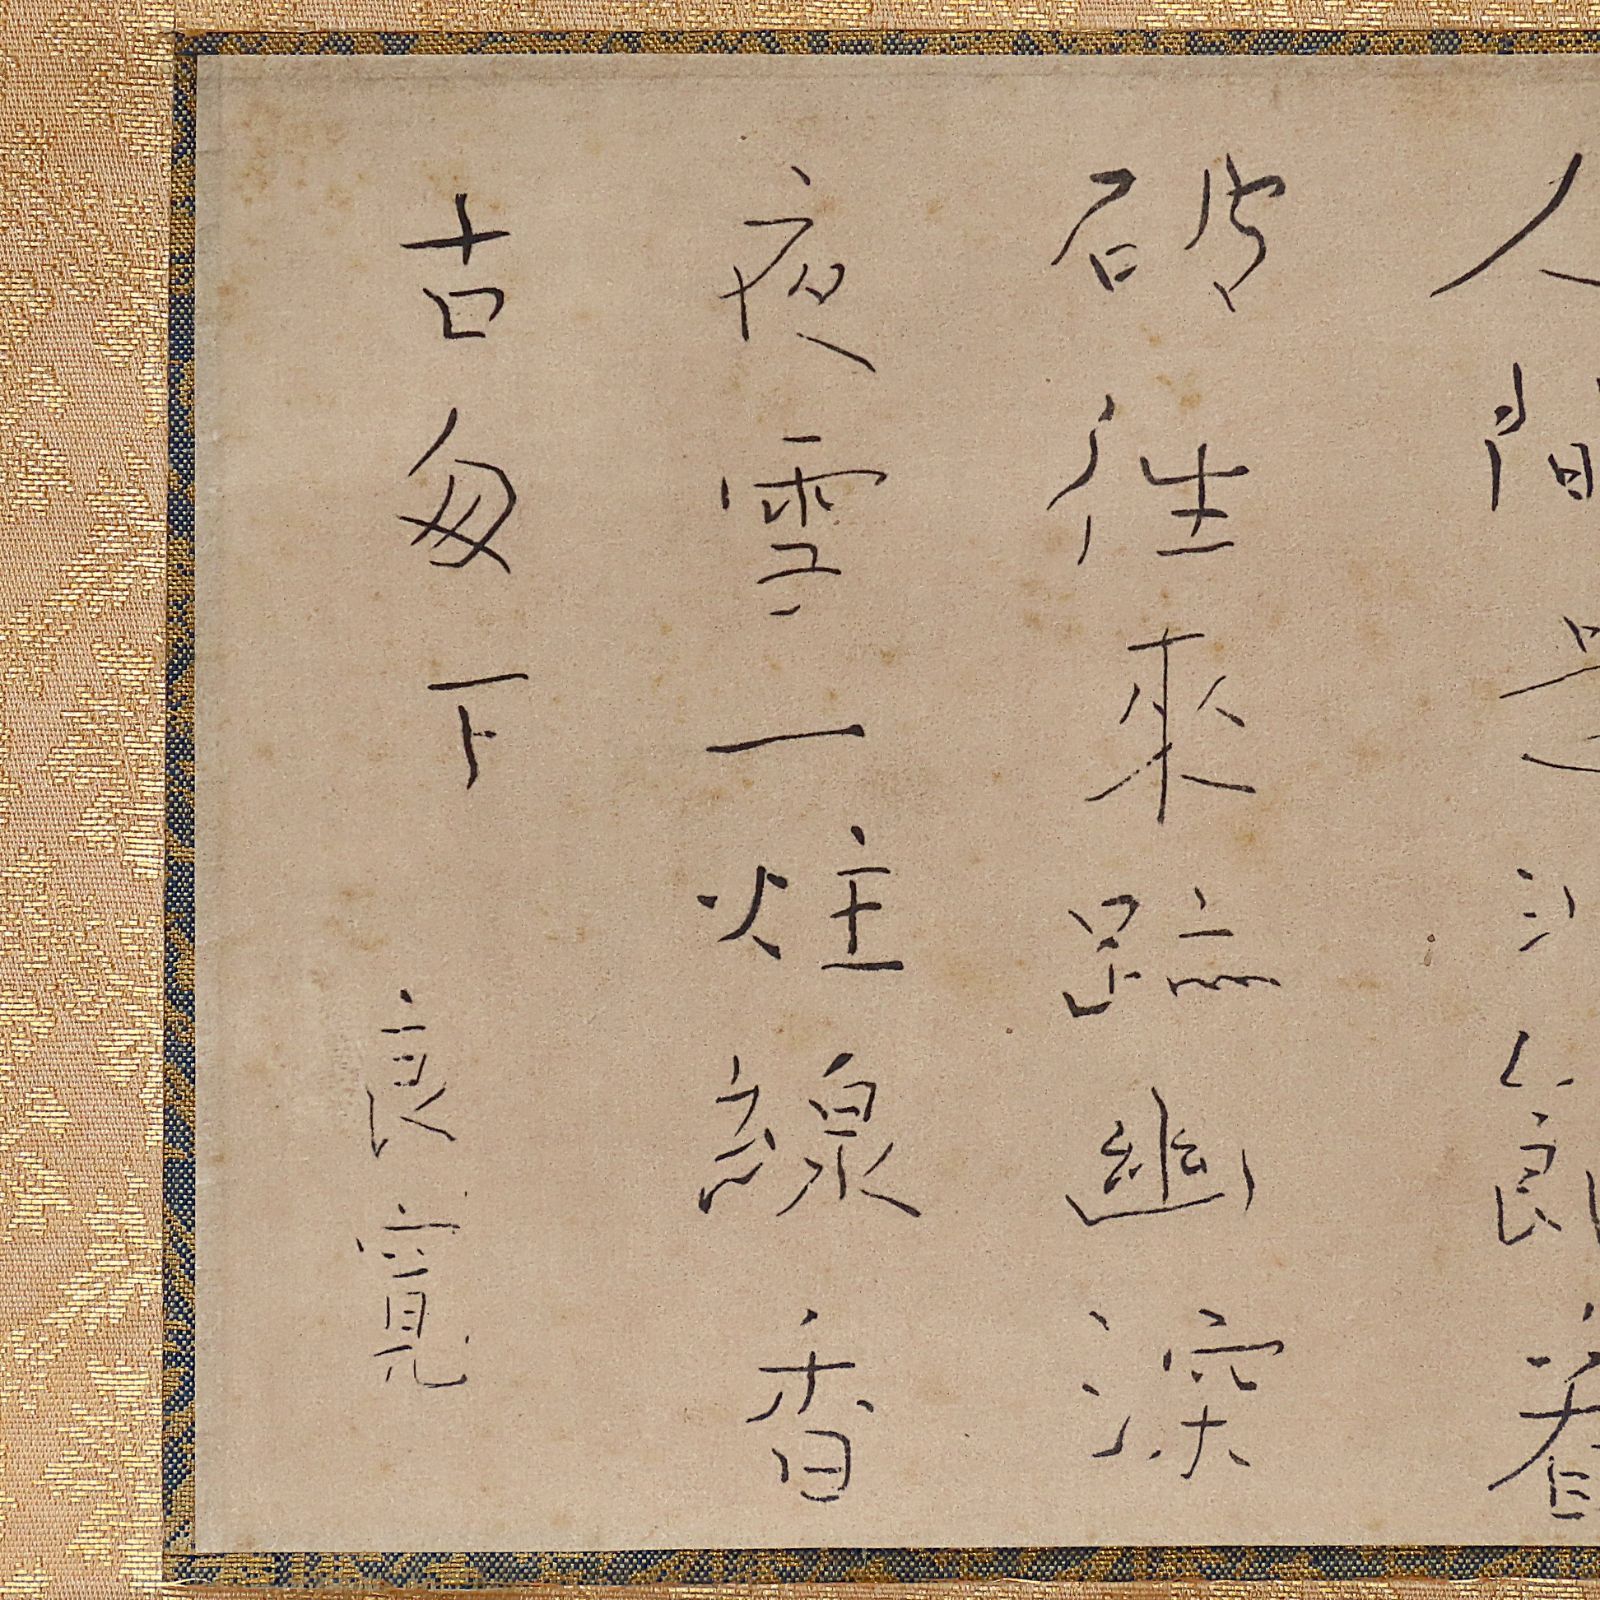 人間是非飽看
破往來跡幽深
夜雪一炷線香
古匆下
良寛